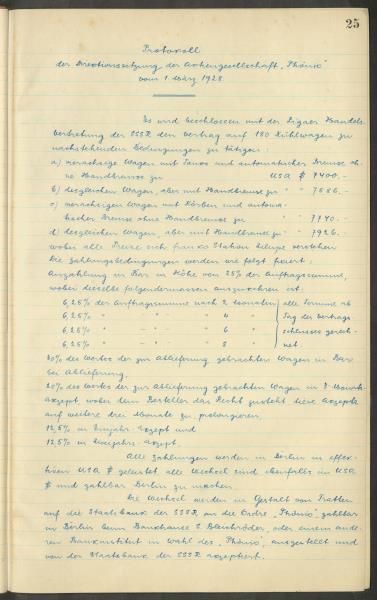 25
Protokoll
der Direktionssitzung der Aktiengesellschaft „Phönix"
vom 1 März 1928
Es wird beschlossen mit der Rigaer Handels-
vertretung der SSSR den Vertrag auf 180 Kühlwagen zu
nachstehenden Bedingungen zu tätigen:
a) vierachsige Wagen mit und automatischer Bremse oh-
ne Handbremse zu USA $ 7400.-
b) desgleichen Wagen, aber mit Handbremse zu " " 7586.-
c) vierachsigen Wagen mit Körben und automa-
tischer Bremse ohne Handbremse zu " " 7740.-
d) desgleichen Wagen, aber mit Handbremse zu " " 7926.-
wobei alle Preise sich franko Station verstehen
Die Zahlungsbedingungen werden wie folgt fixiert:
Anzahlung in Bar in Höhe von 25% der Auftragssumme,
wobei dieselbe folgendermassen ist:
6,25% der Auftragssumme nach 2 Monaten alle Termine ab
6,25% " - " - " 4 " Tag des Vertrags-
6,25% " - " - " 6 " schlusses gerech-
6,25% " - " - " 8 " net
des Wertes der zur Ablieferung gebrachten Wagen in Bar
bei Ablieferung.
20% des Wertes der zur Ablieferung gebrachten Wagen in Monats-
akzept, wobei dem Besteller das Recht zusteht diese Akzepte
auf weitere drei Monate zu prolongieren,
12,5% in Einjahr-Akzept und
12,5% in Akzept.
Alle Zahlungen werden in Berlin in effek-
tiven USA $ geleistet alle Wechsel sind ebenfalls in USA
$ und zahlbar Berlin zu machen.
Die Wechsel werden in Gestalt von Tratten
auf die Staatsbank der SSSR an die Ordre „Phönix" zahlbar
in Berlin beim Bankhause S. Bleichröder, oder einem ande-
ren Bankinstitut in Wahl des „Phönix", ausgestellt und
von der Staatsbank der SSSR akzeptiert.